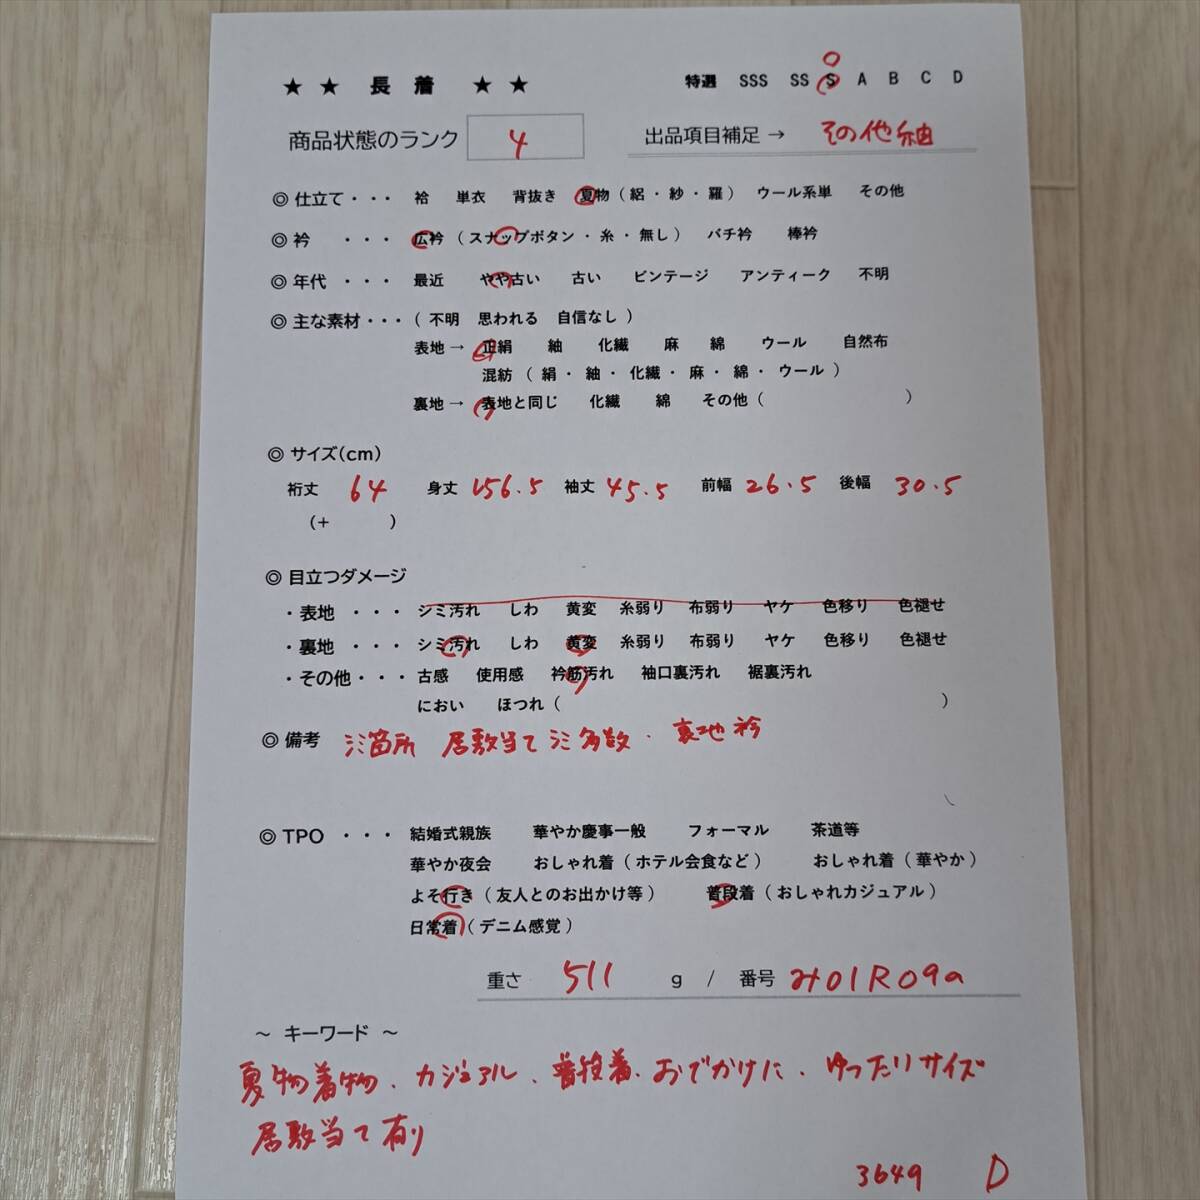 ★ ★ 長 着 ★ ★
特選 SSS SS S A B C D
商品状態のランク 4
出品項目補足 → その他紬
◎ 仕立て・・・ 袷 単衣 背抜き 夏物（絽・紗・羅） ウール系単 その他
◎ 衿 ・・・ 広衿（スナップボタン・糸・無し） バチ衿 棒衿
◎ 年代 ・・・ 最近 やや古い 古い ビンテージ アンティーク 不明
◎ 主な素材・・・（ 不明 思われる 自信なし ）
表地 → 正絹 紬 化繊 麻 綿 ウール 自然布
混紡（ 絹・ 紬・ 化繊・ 麻・ 綿・ ウール ）
裏地 → 表地と同じ 化繊 綿 その他（ ）
◎ サイズ(cm)
裄丈 64 身丈 156.5 袖丈 45.5 前幅 26.5 後幅 30.5
（+ ）
◎ 目立つダメージ
・表地 ・・・ シミ汚れ しわ 黄変 糸弱り 布弱り ヤケ 色移り 色褪せ
・裏地 ・・・ シミ汚れ しわ 黄変 糸弱り 布弱り ヤケ 色移り 色褪せ
・その他・・・ 古感 使用感 衿筋汚れ 袖口裏汚れ 裾裏汚れ
におい ほつれ（ ）
◎ 備考 シミ箇所 居敷当てシミ多数・裏地衿
◎ TPO ・・・ 結婚式親族 華やか慶事一般 フォーマル 茶道等
華やか夜会 おしゃれ着（ホテル会食など） おしゃれ着（華やか）
よそ行き（友人とのお出かけ等） 普段着（おしゃれカジュアル）
日常着（デニム感覚）
重さ 511 g / 番号 み01R09a
～ キーワード ～
夏物着物、カジュアル、普段着、おでかけに、ゆったりサイズ
居敷当て有り
3649 D